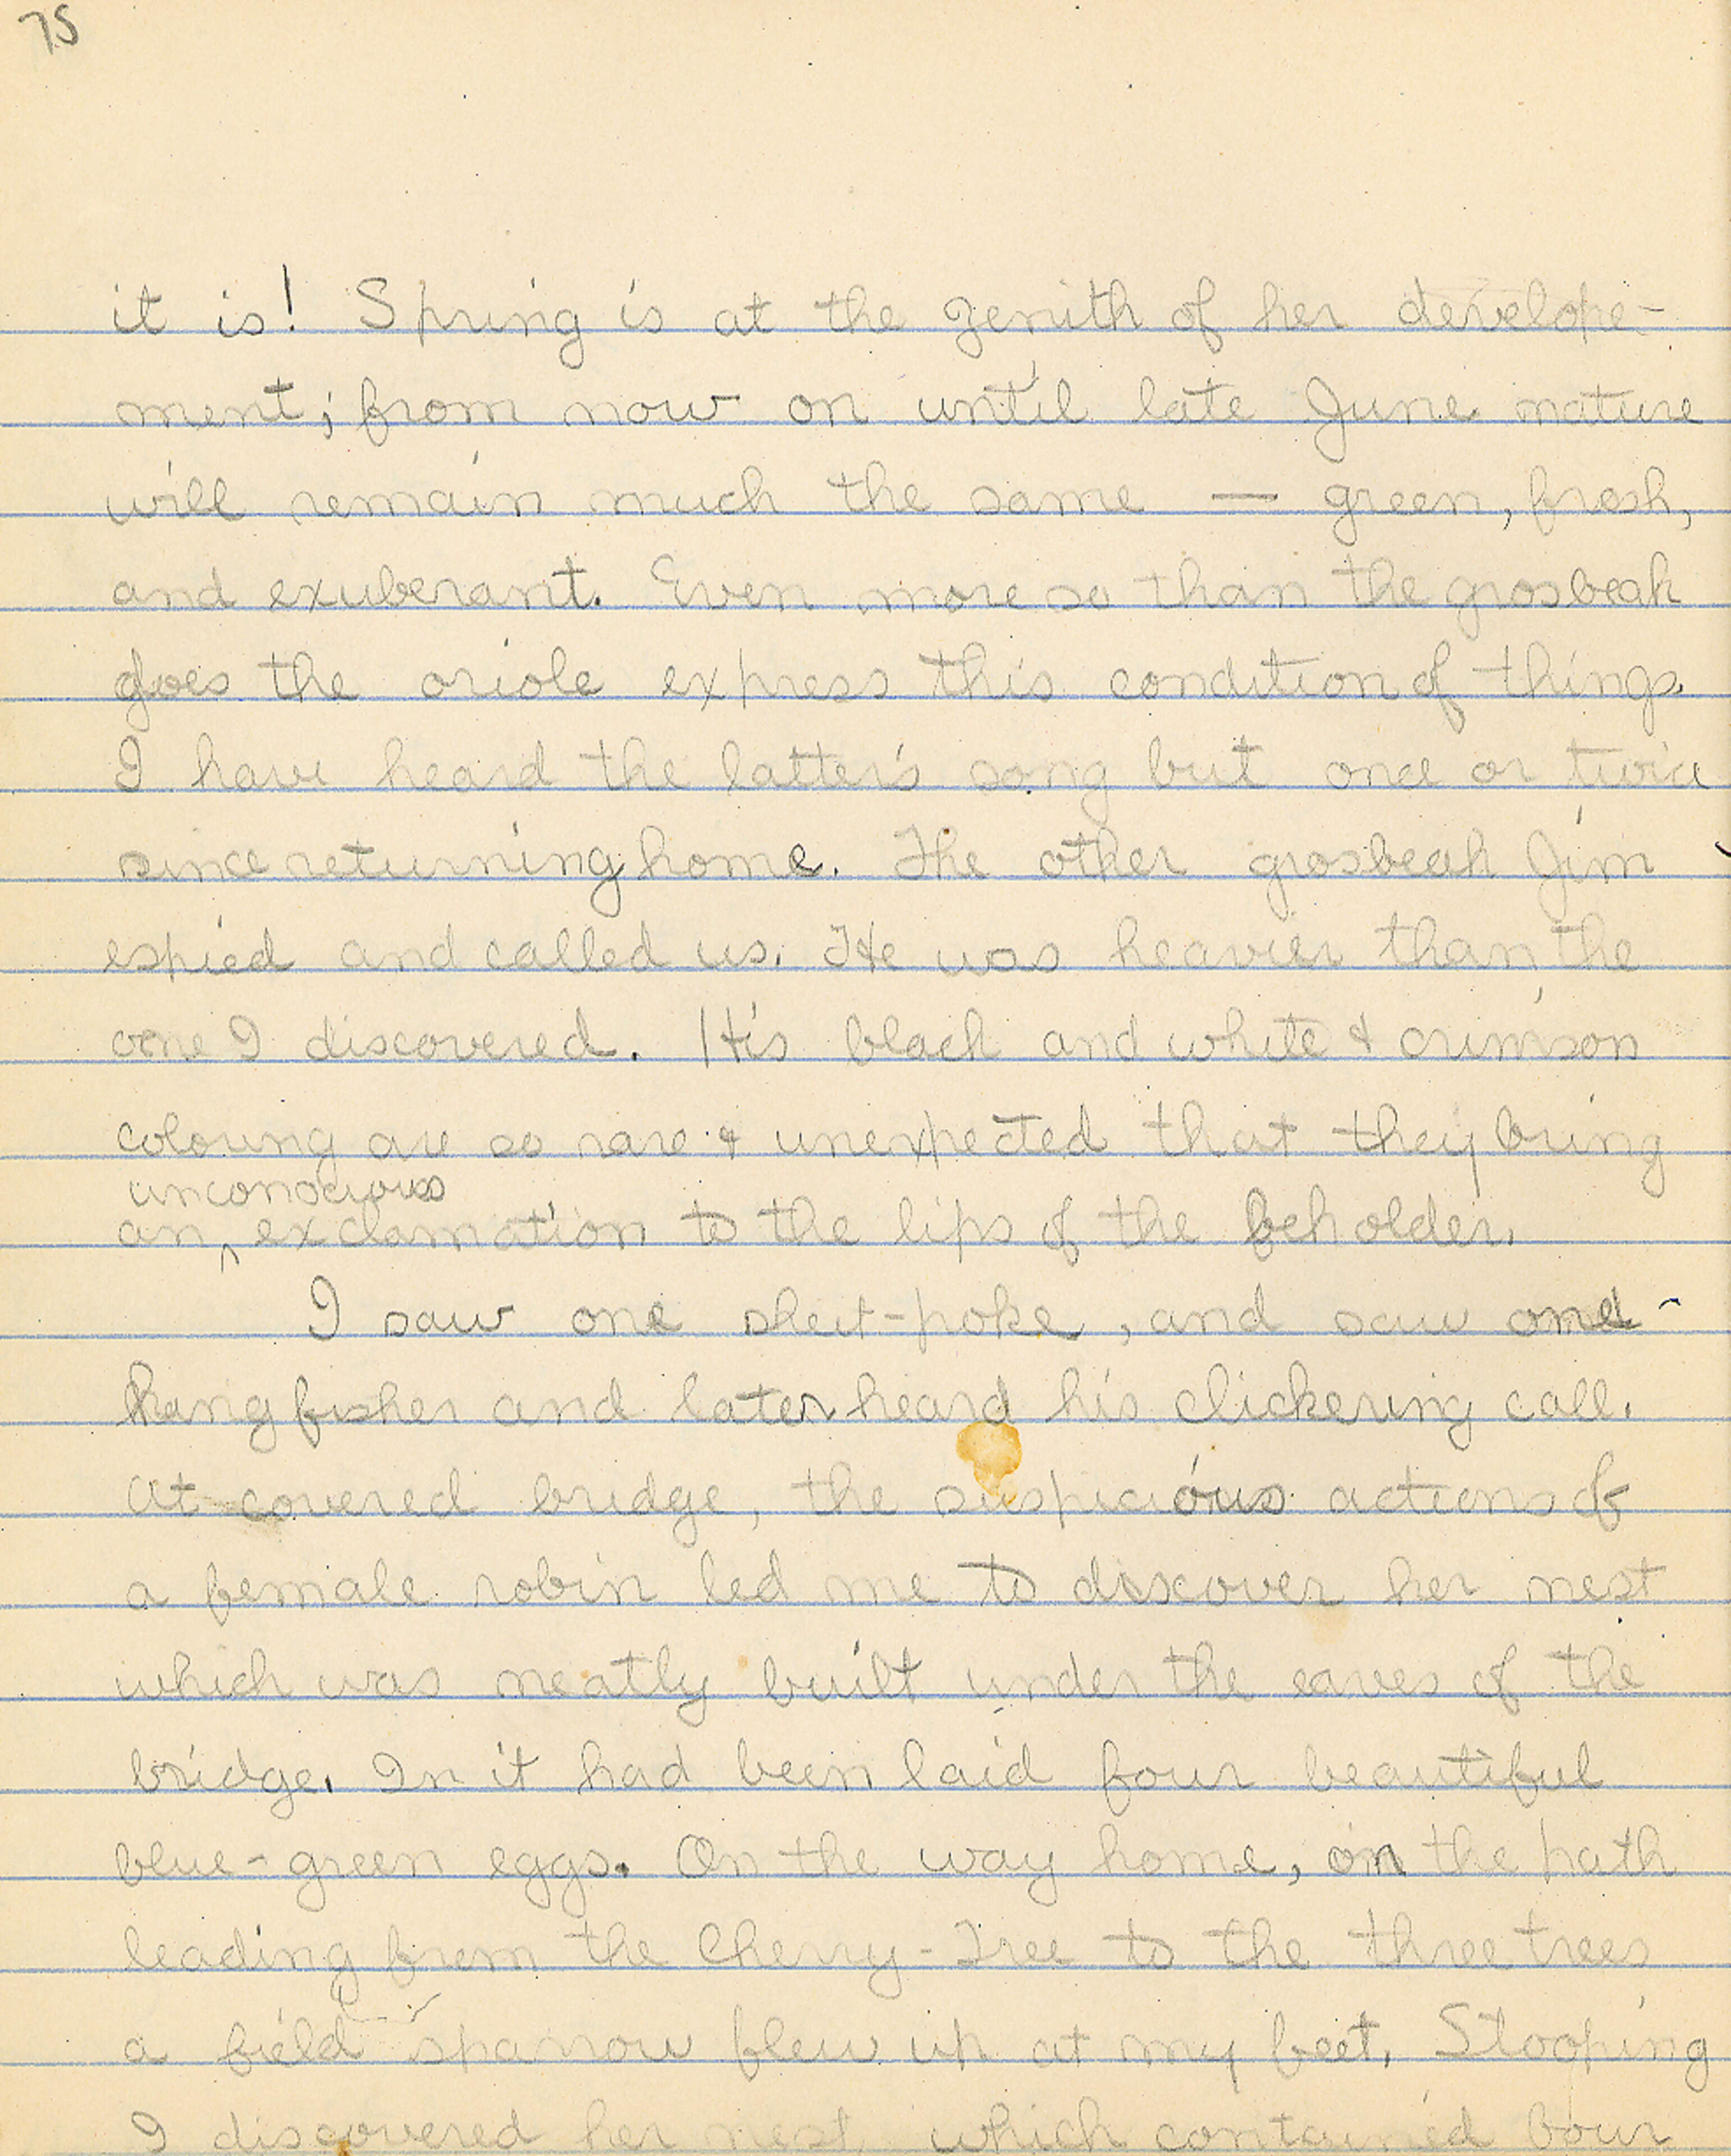 75
it is! Spring is at the zenith of her develope-
ment; from now on until late June nature
will remain much the same — green, fresh,
and exuberant. Even more so than the grosbeak
does the oriole express this condition of things.
I have heard the latter's song but once or twice
since returning home. The other grosbeak Jim
espied and called us. He was heavier than the
one I discovered. His black and white & crimson
coloring are so rare & unexpected that they bring
unconscious
an ^ exclamation to the lips of the beholder.
I saw one sheit-poke, and saw one
kingfisher and later heard his clickering call.
At covered bridge, the suspicious actions of
a female robin led me to discover her nest
which was neatly built under the eaves of the
bridge. In it had been laid four beautiful
blue-green eggs. On the way home, on the path
leading from the Cherry-Tree to the three trees
a field sparrow flew up at my feet. Stooping
I discovered her nest which contained four